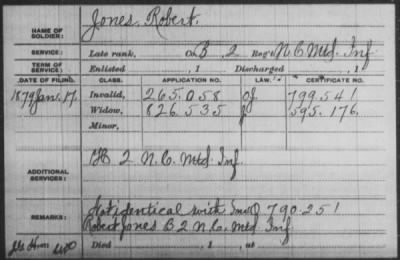 NAME OF SOLDIER: Jones, Robert.
SERVICE: Late rank, Co. B, 2 Reg't N.C. Mtd. Inf.
TERM OF SERVICE: Enlisted , 1 Discharged , 1
DATE OF FILING. CLASS. APPLICATION NO. LAW. CERTIFICATE NO.
1879 Jan. 17. Invalid, 265.058 799.541
Widow, 826.535 595.176.
Minor,
ADDITIONAL SERVICES: 2 N.C. Mtd. Inf.
REMARKS: Not identical with Inv. O 790.251
Robert Jones B 2 N.C. Mtd Inf.
Died , 1 , at